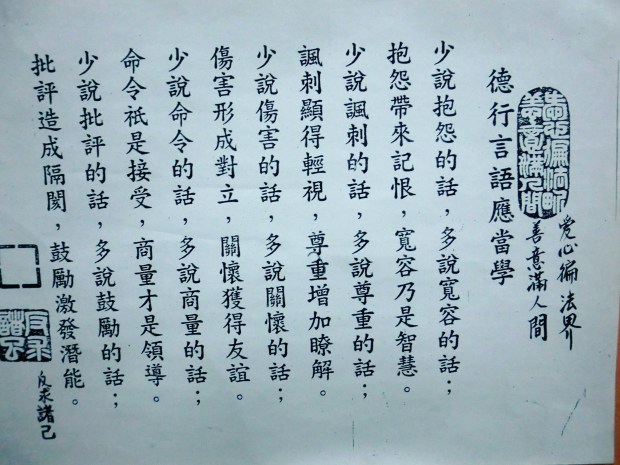 愛心徧法界
善意滿人間
愛心徧法界
善意滿人間
德行言語應當學
少說抱怨的話，多說寬容的話；
抱怨帶來記恨，寬容乃是智慧。
少說諷刺的話，多說尊重的話；
諷刺顯得輕視，尊重增加瞭解。
少說傷害的話，多說關懷的話；
傷害形成對立，關懷獲得友誼。
少說命令的話，多說商量的話；
命令祇是接受，商量才是領導。
少說批評的話，多說鼓勵的話；
批評造成隔閡，鼓勵激發潛能。
反求
諸己
反求諸己